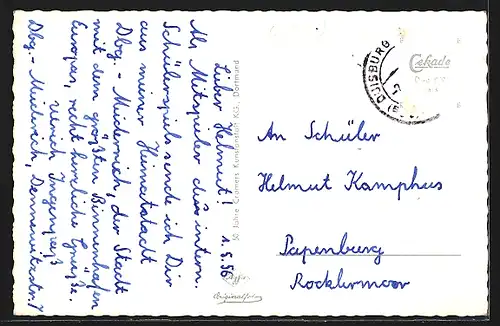 Lieber Helmut! 1. 5. 56
Als Mitspieler des intern.
Schülerspiels sende ich Dir
aus meiner Heimatstadt
Dbg. - Meiderich, der Stadt
mit dem größten Binnenhafen
Europas, recht herzliche Grüße.
Ulrich
Dbg. - Meiderich,
50 Jahre Cramers Kunstanstalt KG., Dortmund
DUISBURG
Cekade
An Schüler
Helmut Kamphus
Papenburg
Rocklermoor
Originalfoto